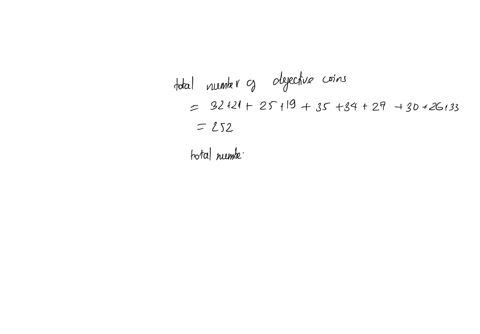 total number of dejective coins
= 32+21 + 25+19 + 35 +34 + 27 +30 +26+33
= 252
total numbe.